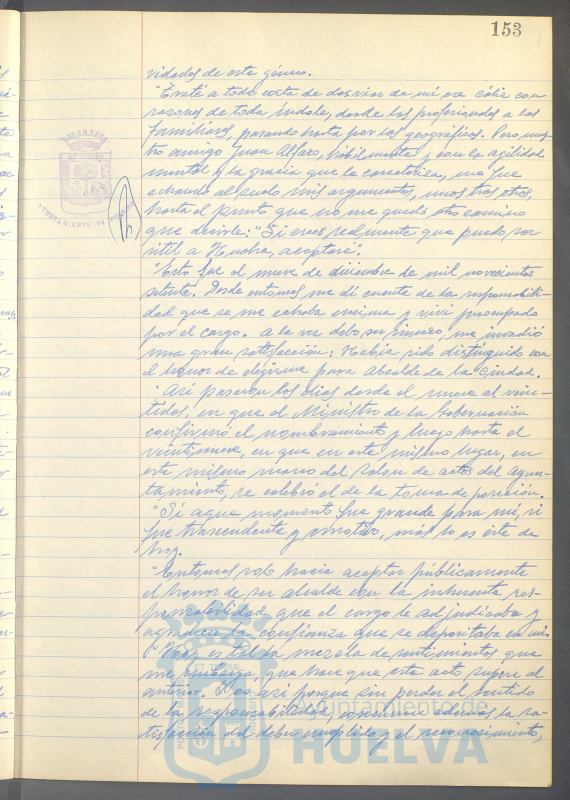 153
vidades de este género.
"Traté a toda costa de desviar de mí ese cáliz con
razones de toda índole, desde las profesionales a las
familiares, pasando hasta por las geográficas. Pero nues-
tro amigo Juan Alfaro, hábilmente y con la agilidad
mental y la gracia que le caracteriza, me fue
echando al suelo mis argumentos, unos tras otros,
hasta el punto que no me quedó otro camino
que decirle: "Si crees realmente que puedo ser
útil a Huelva, aceptaré".
"Esto fue el nueve de diciembre de mil novecientos
setenta. Desde entonces me di cuenta de la responsabili-
dad que se me echaba encima y viví preocupado
por el cargo. A la vez debo ser sincero, me invadió
una gran satisfacción: Había sido distinguido con
el honor de elegirme para Alcalde de la ciudad.
"Así pasaron los días desde el nueve al vein-
tidós, en que el Ministro de la Gobernación
confirmó el nombramiento y luego hasta el
veintinueve, en que en este mismo lugar, en
este mismo marco del salón de actos del Ayun-
tamiento, se celebró el de la toma de posesión.
"Si aquel momento fue grande para mí, si
fue trascendente y emotivo, más lo es éste de
hoy.
"Entonces solo hacía aceptar públicamente
el honor de ser alcalde con la inherente res-
ponsabilidad que el cargo le adjudicaba y
agradecer la confianza que se depositaba en mí.
"Hoy es tal la mezcla de sentimientos que
me embarga, que hace que este acto supere al
anterior. Y es así porque sin perder el sentido
de la responsabilidad, concurren además la sa-
tisfacción del deber cumplido y el reconocimiento,
Ayuntamiento de
HUELVA